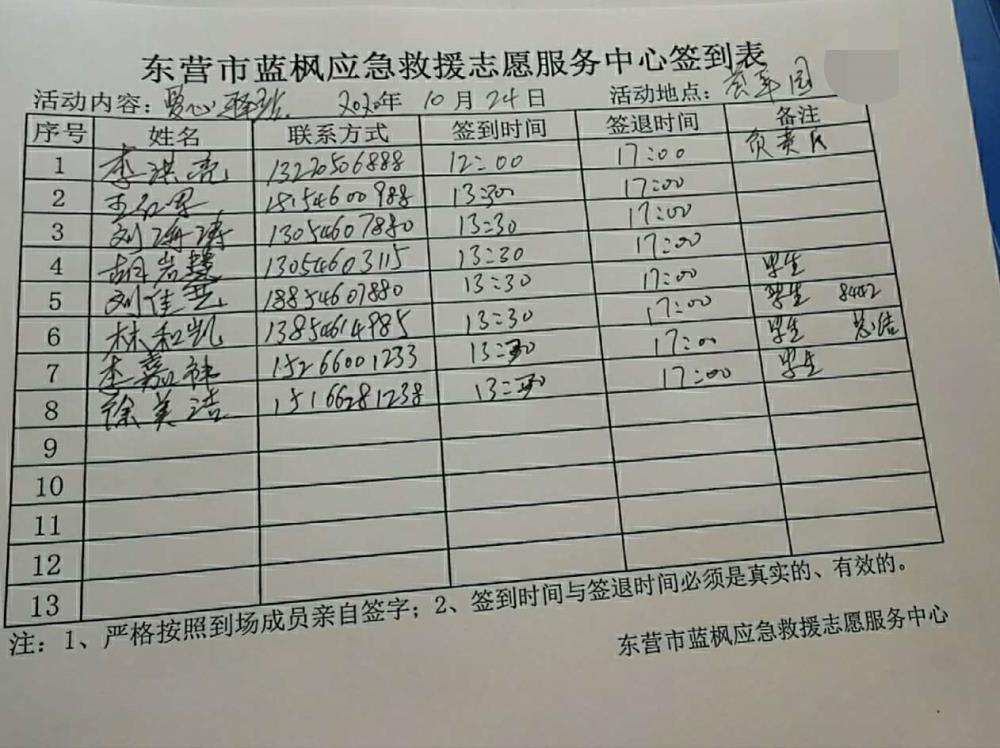 东营市蓝枫应急救援志愿服务中心签到表
活动内容：爱心 2020年 10月24日 活动地点：
序号 姓名 联系方式 签到时间 签退时间 备注
1 李洪亮 13220506888 12:00 17:00 负责人
2 15154600988 13:30 17:00
3 刘海涛 13054607880 13:30 17:00
4 胡岩慧 13054603115 13:30 17:00 学生
5 刘佳 18854607880 13:30 17:00 学生
6 林和凯 13854614985 13:30 17:00 学生 总结
7 李嘉祎 15266001233 13:30 17:00 学生
8 徐美洁 15166281238 13:30 17:00
9
10
11
12
13
注：1、严格按照到场成员亲自签字；2、签到时间与签退时间必须是真实的、有效的。
东营市蓝枫应急救援志愿服务中心